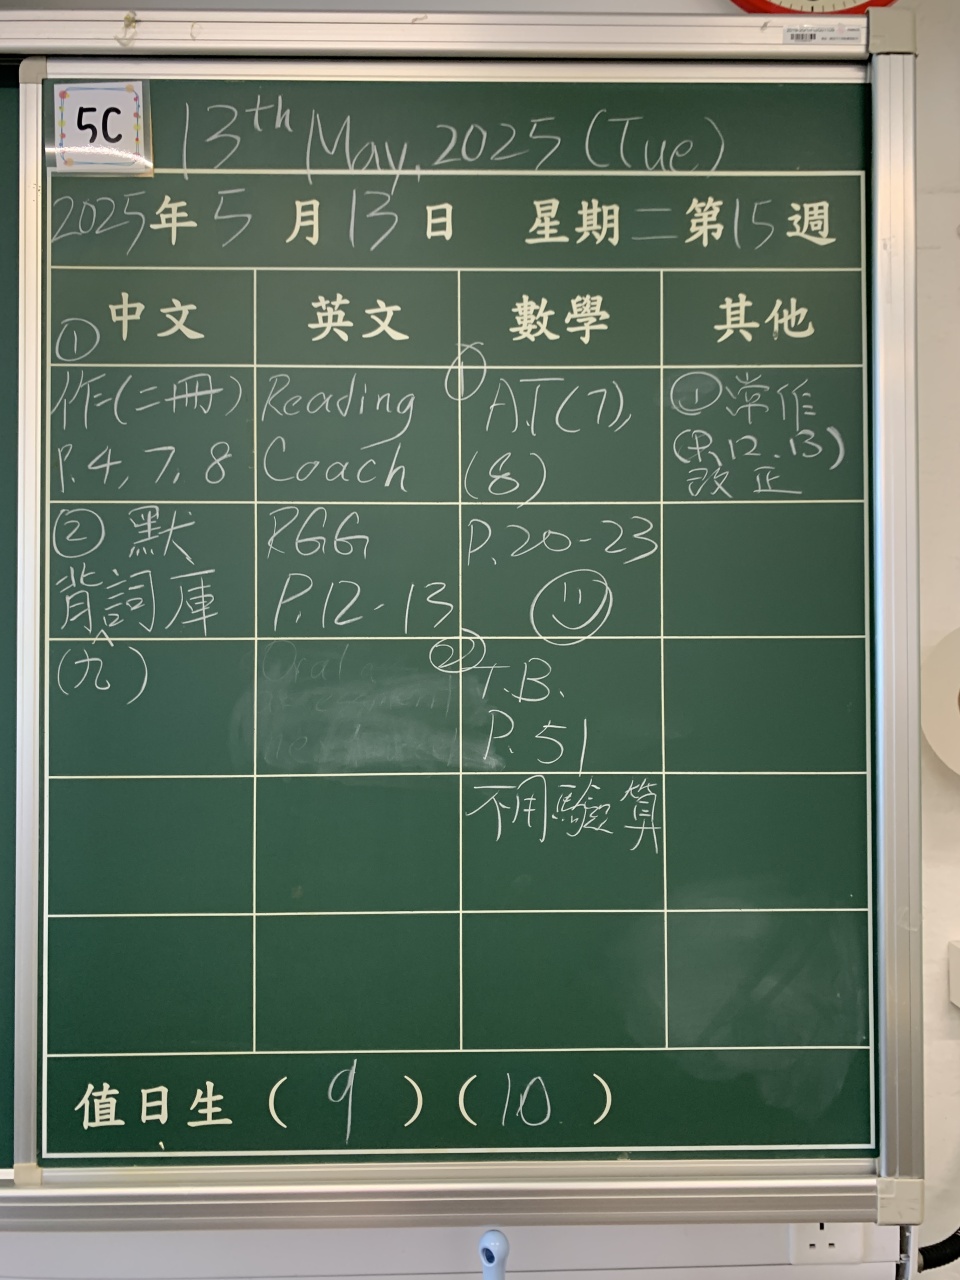 5C
13th May, 2025 (Tue)
2025年5月13日 星期二第15週
中文 英文 數學 其他
①
作(二冊)
P.4, 7, 8
② 默
背詞庫
(九)
Reading
Coach
RGG
P.12-13
Oral
①
A.T(7),
(8)
P.20-23
②
T.B.
P.51
不用驗算
① 常作
(P.12.13)
改正
值日生( 9 )( 10 )